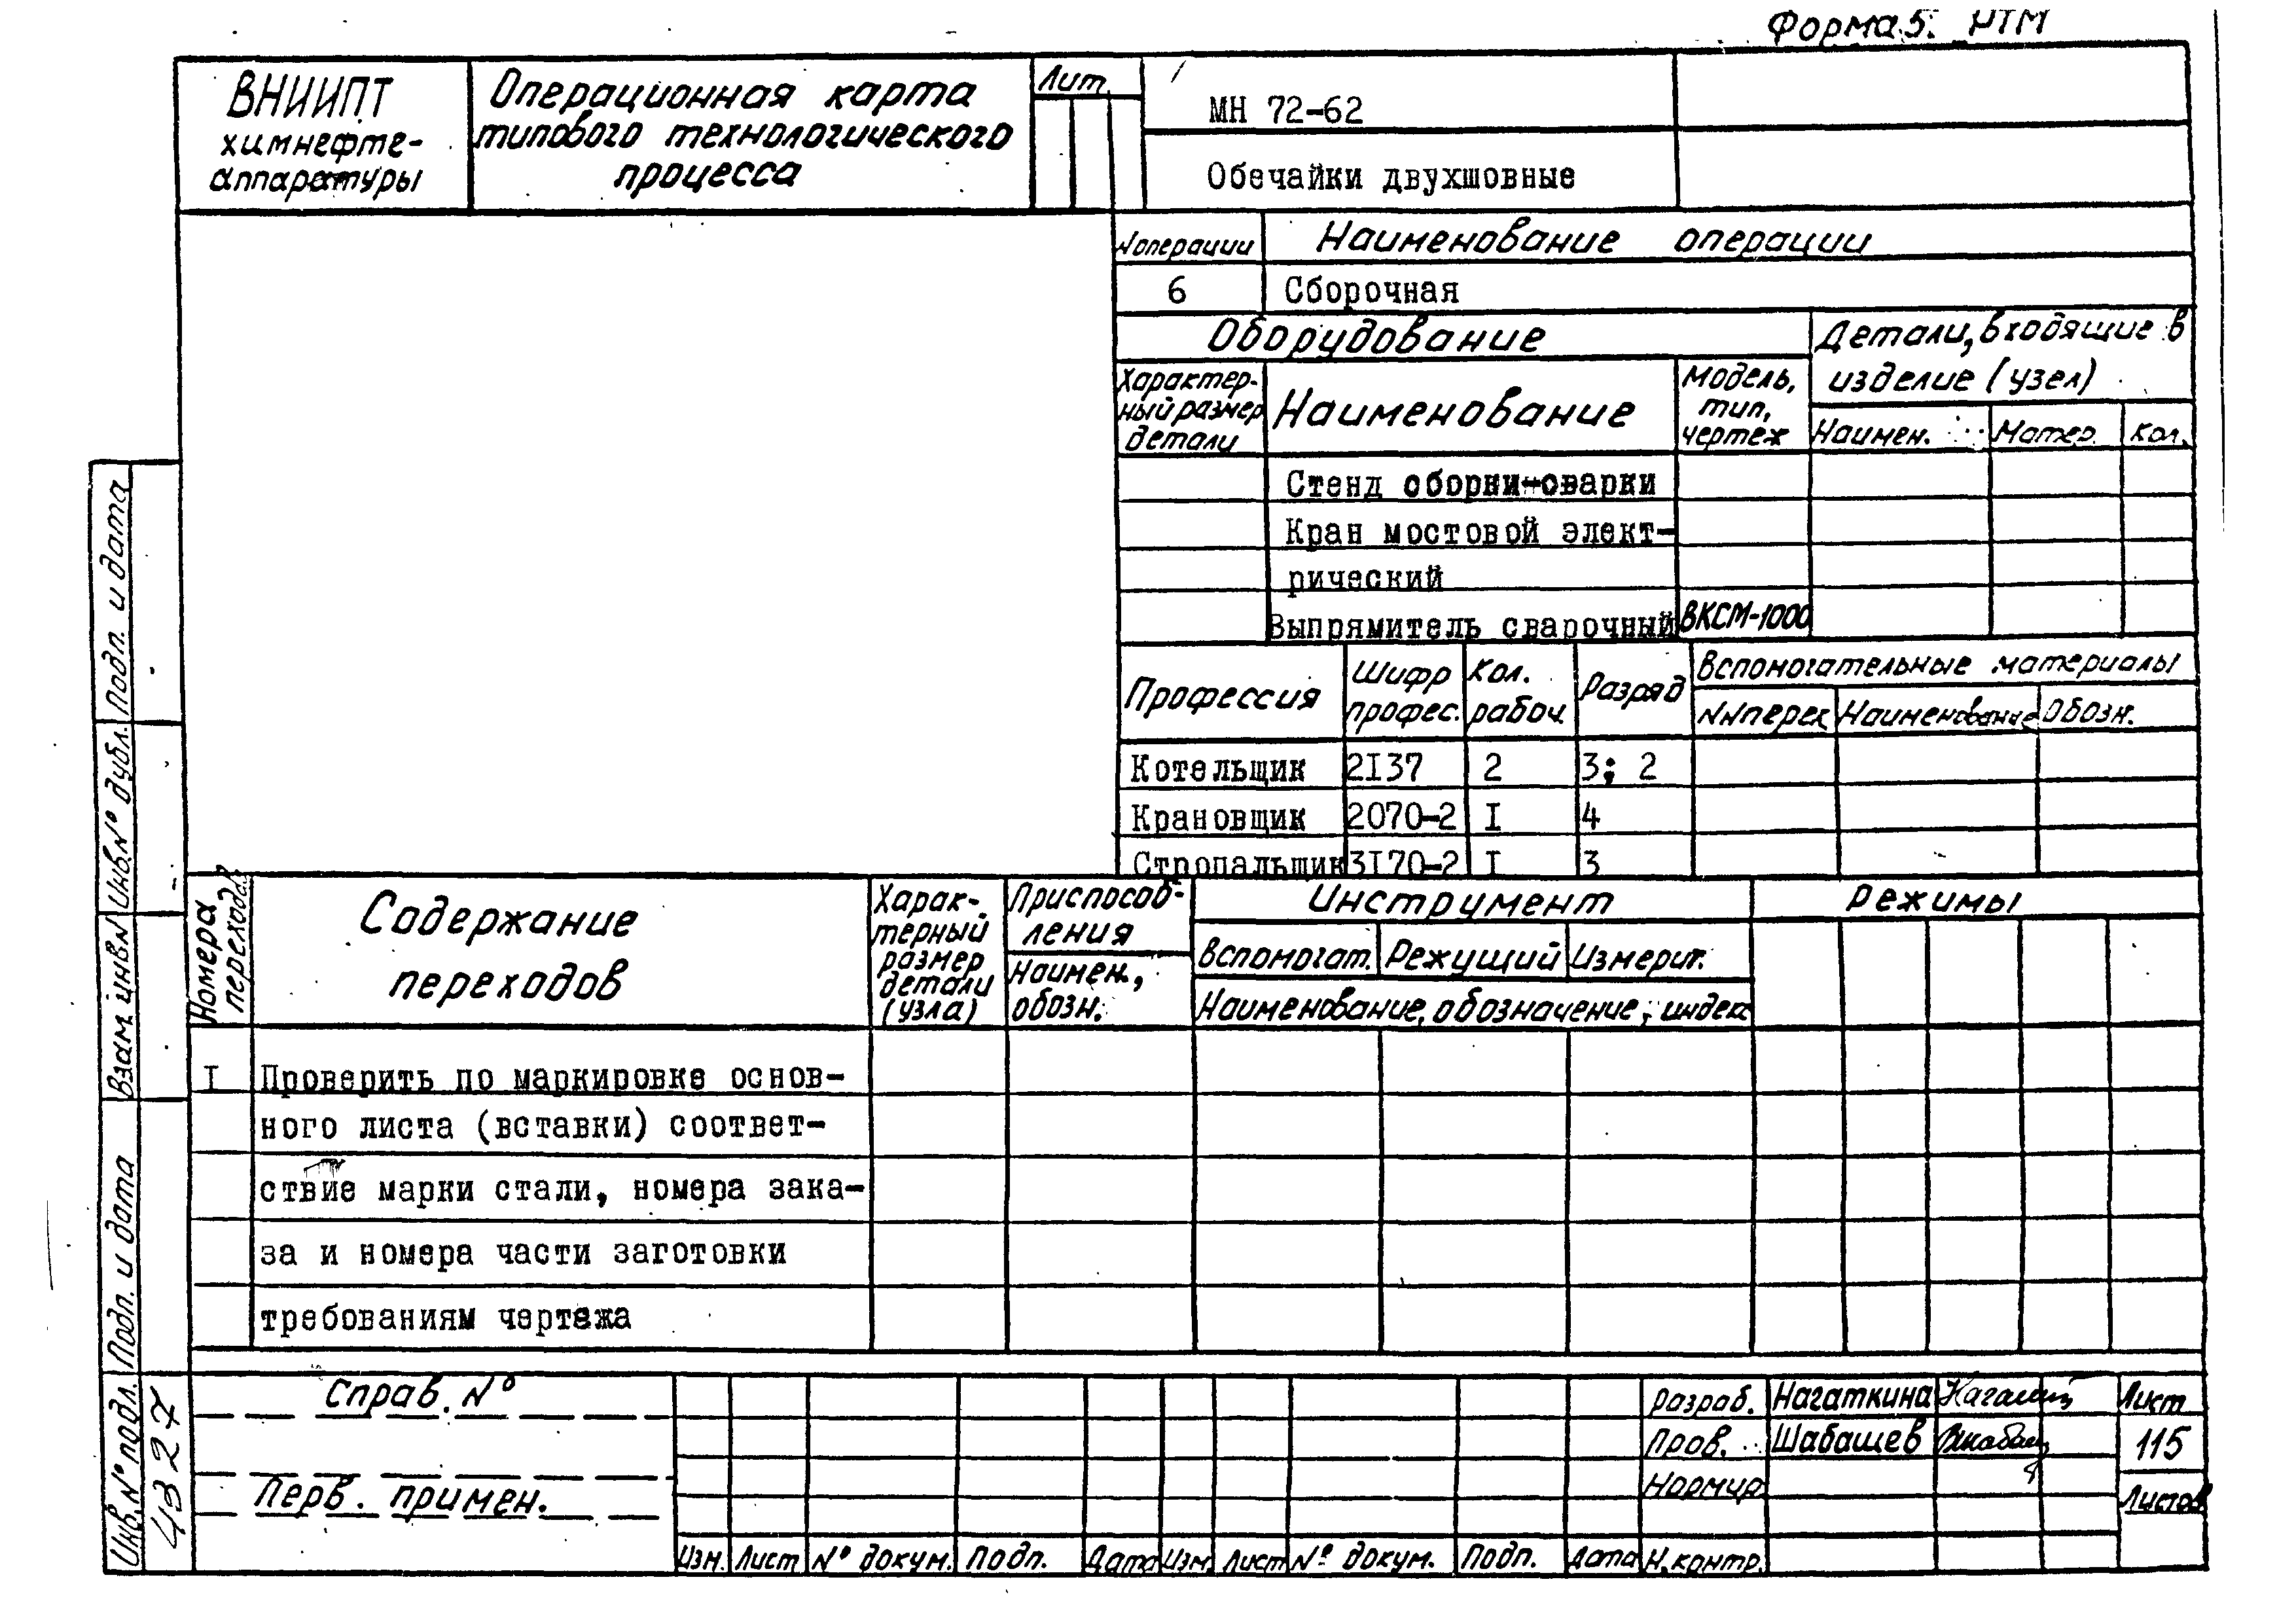 Форма 5. РТМ
ВНИИПТ
химнефте-
аппаратуры
Операционная карта
типового технологического
процесса
Лит.
МН 72-62
Обечайки двухшовные
№ операции
Наименование операции
6
Сборочная
Оборудование
Детали, входящие в
изделие (узел)
Характер-
ный размер
детали
Наименование
Модель,
тип,
чертеж
Наимен.
Матер.
Кол.
Стенд сборки-сварки
Кран мостовой элект-
рический
Выпрямитель сварочный
ВКСМ-1000
Профессия
Шифр
профес.
Кол.
рабоч.
Разряд
Вспомогательные материалы
№№ перех
Наименование
Обозн.
Котельщик 2I37 2 3; 2
Крановщик 2070-2 I 4
Стропальщик 3I70-2 I 3
Номера
переходов
Содержание
переходов
Харак-
терный
размер
детали
(узла)
Приспособ-
ления
Наимен.,
обозн.
Инструмент
Вспомогат.
Режущий
Измерит.
Наименование, обозначение, индекс
Режимы
I Проверить по маркировке основ-
ного листа (вставки) соответ-
ствие марки стали, номера зака-
за и номера части заготовки
требованиям чертежа
Подп. и дата
Инв. № дубл.
Взам. инв. №
Подп. и дата
Инв. № подл.
4327
Справ. №
Перв. примен.
Изм. Лист № докум. Подп. Дата Изм. Лист № докум. Подп. Дата
Разраб. Нагаткина
Пров. Шабашев
Нормир.
Н. контр.
Лист
115
Листов